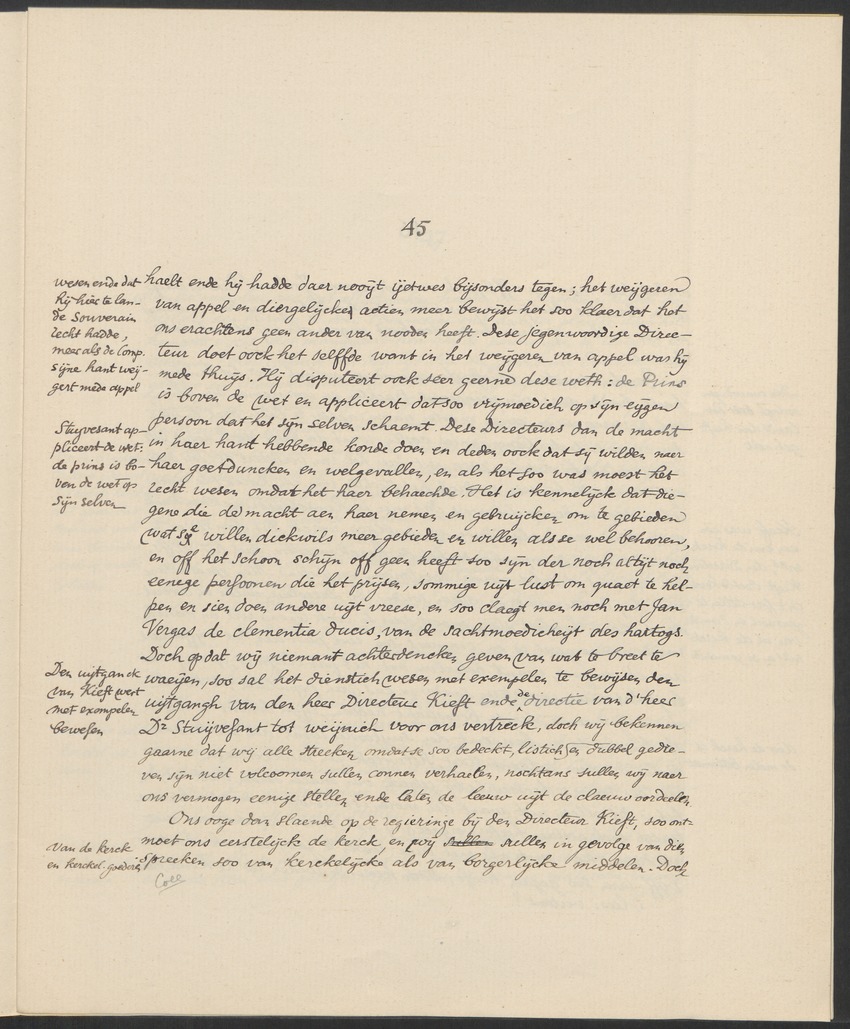 45
wesen ende dat
hij hier te lan-
de Souverain
recht hadde,
meer als de Comp.
sijne hant weij-
gert mede appel
haelt ende hij hadde daer nooijt ijetwes bijsonders tegen; het weijgeren
van appel en diergelijcke actien meer bewijst het soo klaer dat het
ons erachtens geen ander van nooden heeft. Dese jegenwoordige Direc-
teur doet oock het selffde want in het weijgeren van appel was hij
mede thuijs. Hij disputeert oock seer geerne dese weth: de Prins
is boven de wet en appliceert dat soo vrijmoedich op sijn eijgen
persoon dat het sijn selven schaemt. Dese Directeurs dan de macht
in haer hant hebbende konde doen en deden oock dat sij wilden naer
haer goetduncken en welgevallen, en als het soo was moest het
recht wesen omdat het haer behaechde. Het is kennelijck dat die-
gene die de macht aen haer nemen en gebruijcken om te gebieden
wat se willen dickwils meer gebieden en willen als se wel behooren,
en off het schoon schijn off geen heeft soo sijn der noch altijt noch
eenege persoonen die het prijsen, sommige uijt lust om quaet te hel-
pen en sien doen andere uijt vreese, en soo claegt men noch met Jan
Vergas de clementia ducis, van de sachtmoedicheijt des hartogs.
Stuyvesant ap-
pliceert de wet:
de prins is bo-
ven de wet op
sijn selven
Doch op dat wij niemant achterdencken geven van wat te breet te
waeijen, soo sal het dienstich wesen met exempelen te bewijsen den
uijtgangh van den heer Directeur Kieft ende de directie van d'heer
Dr Stuijvesant tot weijnich voor ons vertreck, doch wij bekennen
gaarne dat wij alle streecken omdat se soo bedeckt, listich en dubbel gedre-
ven sijn niet volcoomen sullen connen verhaelen, nochtans sullen wij naer
ons vermogen eenige stellen ende laten de leeuw uijt de claeuw oordeelen
Den uijtganck
van Kieft wert
met exempelen
bewesen
Ons ooge dan slaende op de regieringe bij den Directeur Kieft, soo ont-
moet ons eerstelijck de kerck, en wij stellen stellen in gevolge van dien
spreeken soo van kerckelijcke als van borgerlijcke middelen. Doch
Van de kerck
en kerckel. goederen
Coll